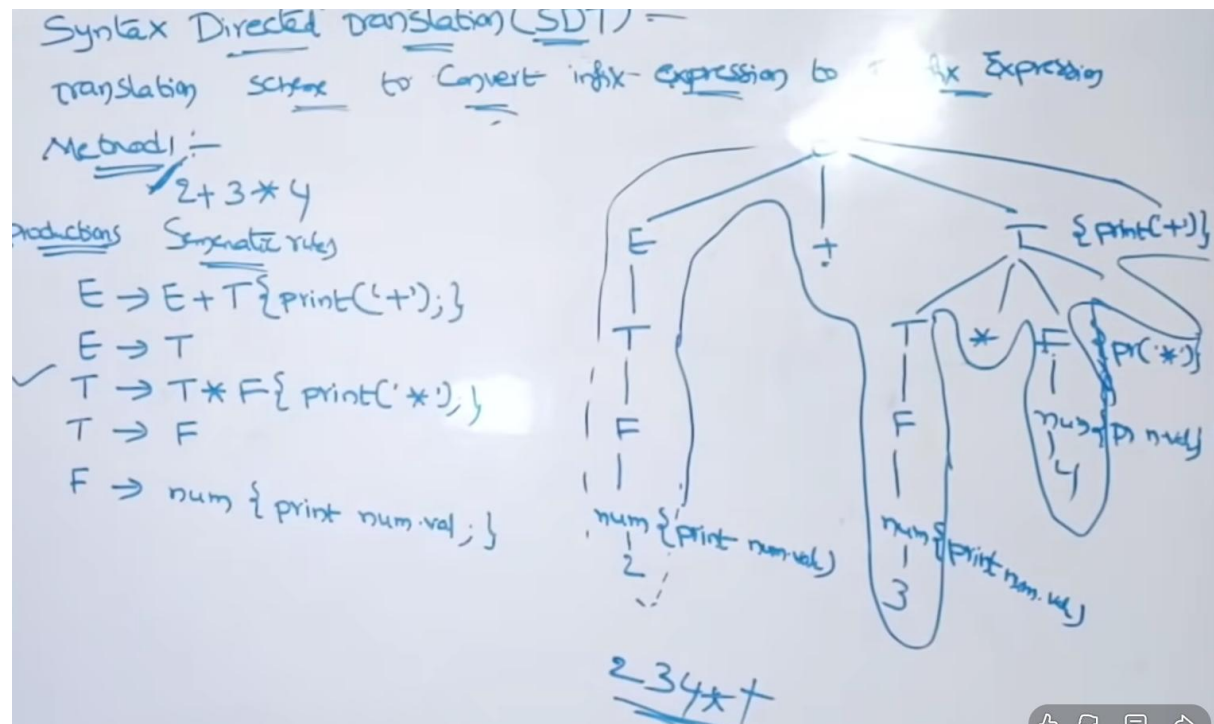 Syntax Directed Translation (SDT) -
Translation scheme to Convert infix expression to Expression
Method1 :-
2+3*4
Productions Semenatic rules
E → E + T {print('+');}
E → T
T → T * F { print('*'); }
T → F
F → num { print num.val; }
E + T {print('+')}
T T * F {pr('*')}
F F num {pr n.val}
4
num {print num.val} num {print num.val}
2 3
234*+